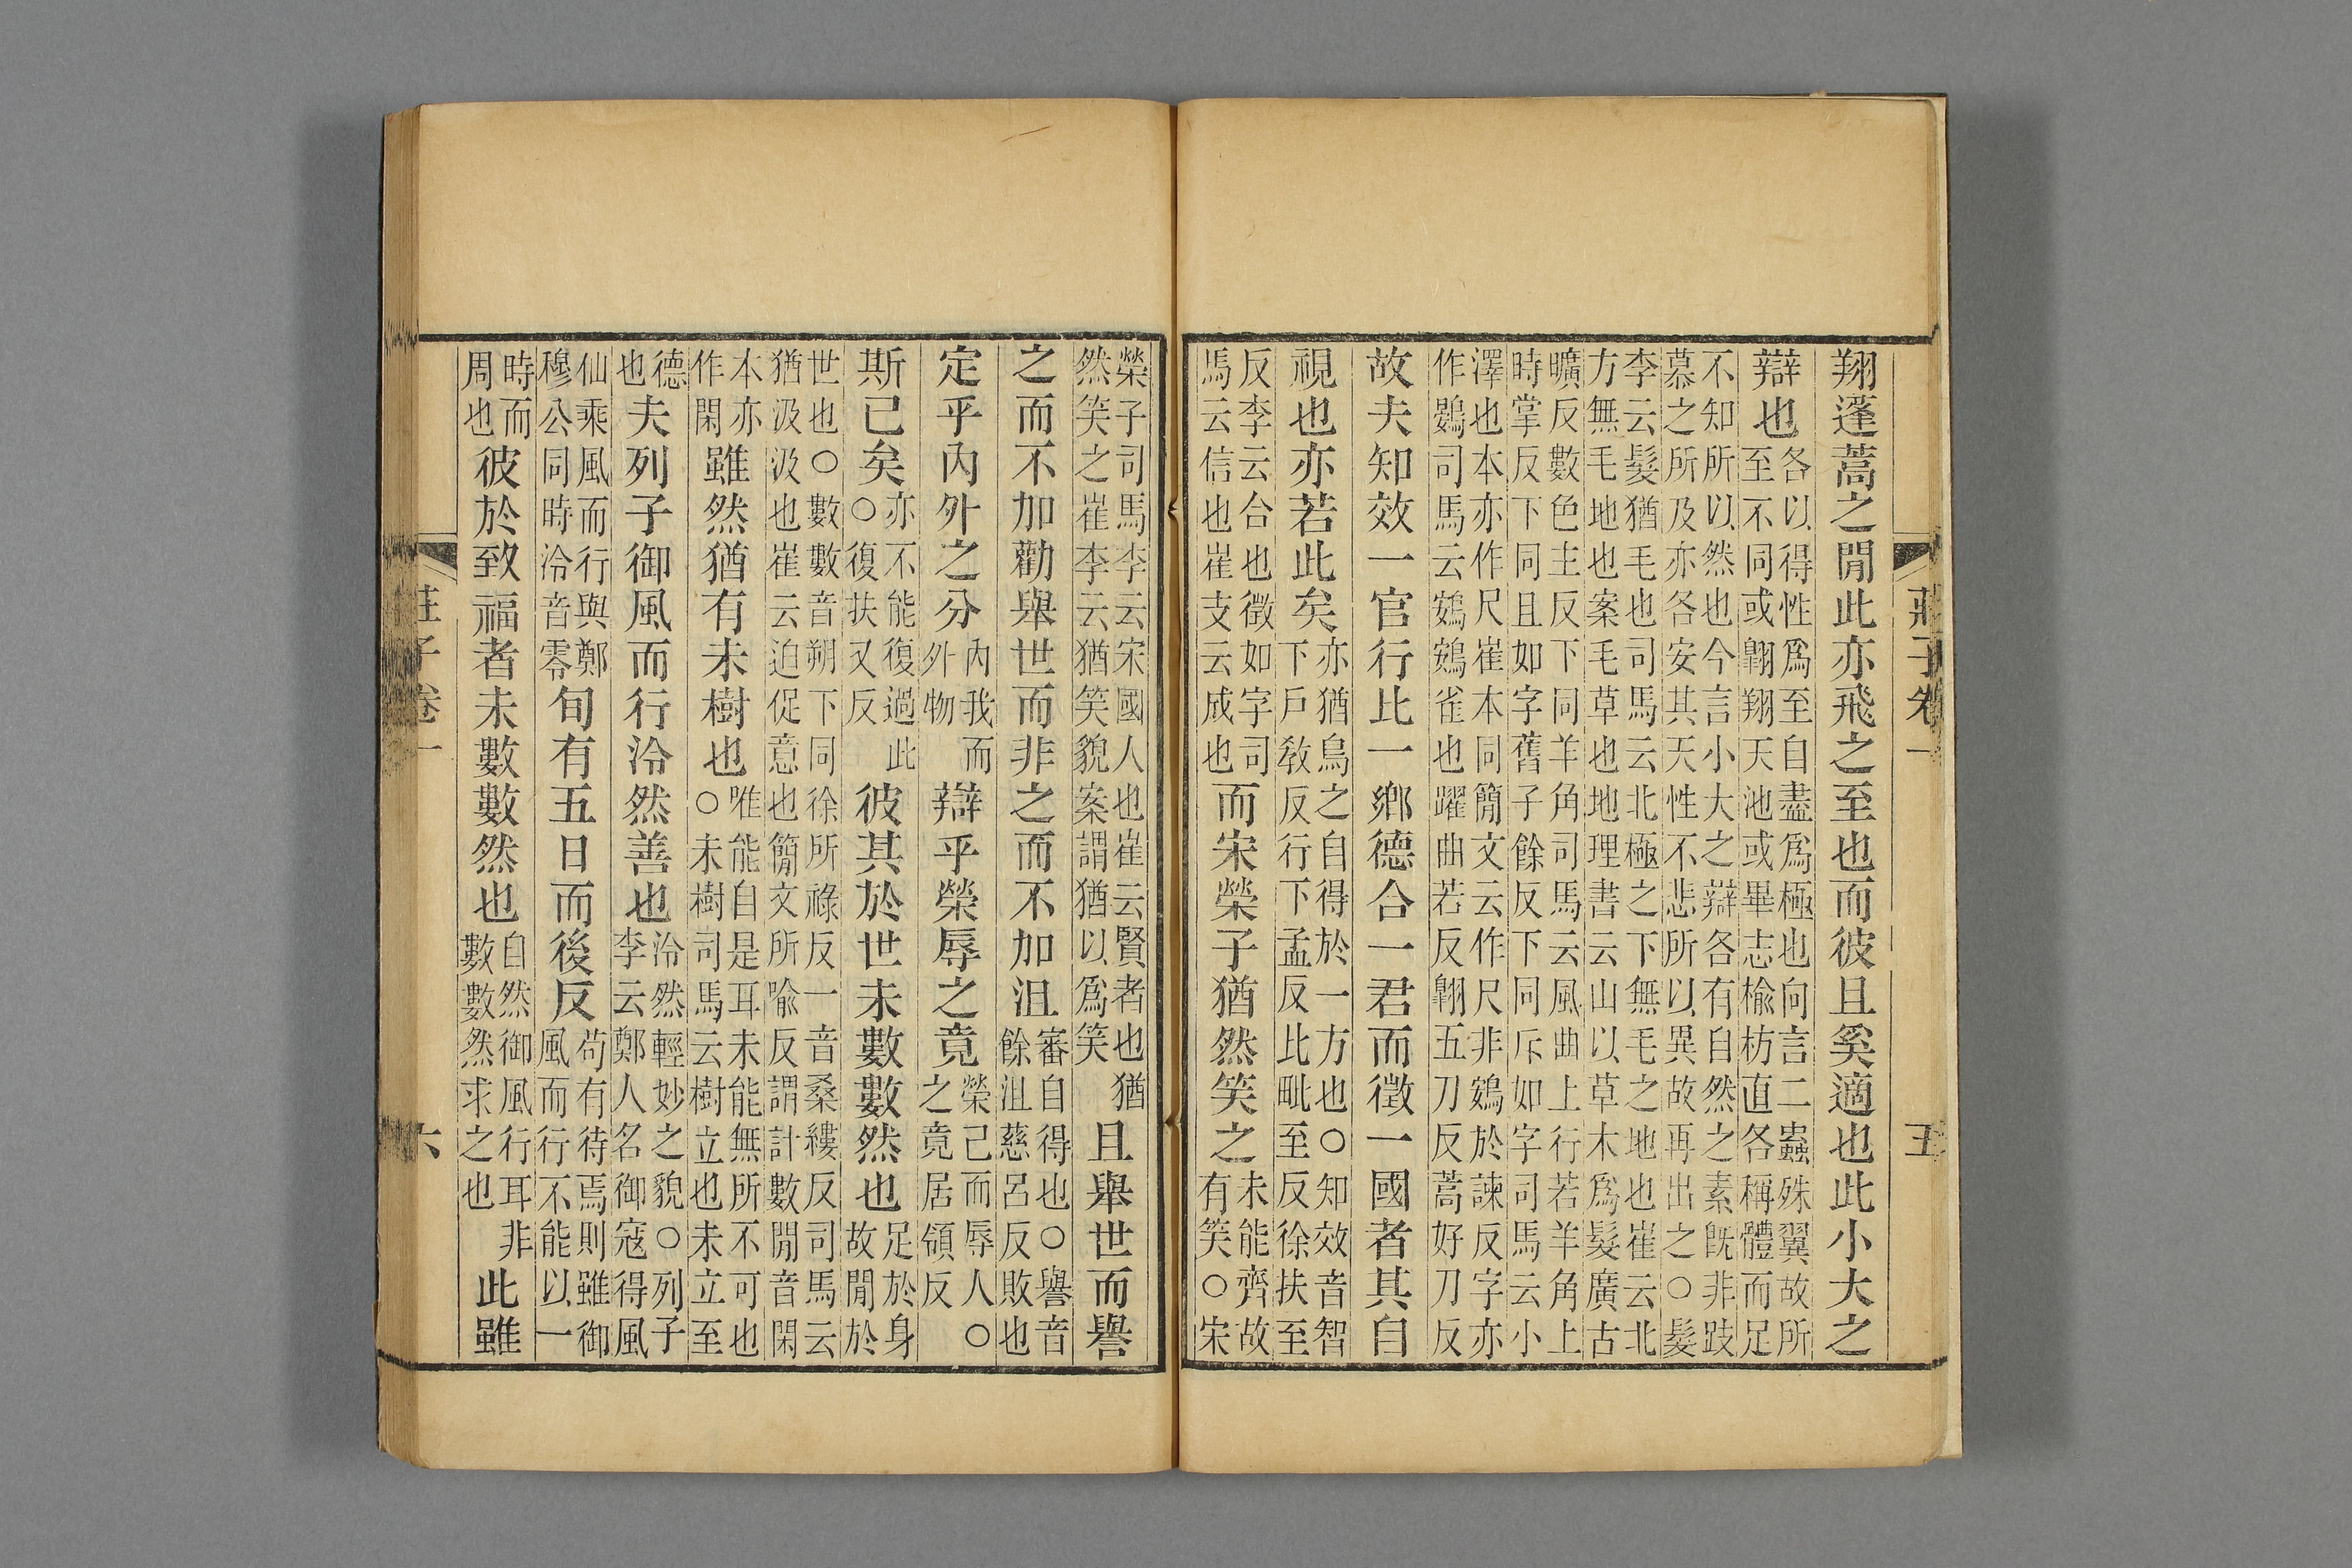 莊子卷一　五
翔蓬蒿之閒此亦飛之至也而彼且奚適也此小大之
辯也
各以得性爲至自盡爲極也向言二蟲殊翼故所
至不同或翺翔天池或畢志榆枋直各稱體而足
不知所以然也今言小大之辯各有自然之素旣非跂
慕之所及亦各安其天性不悲所以異故再出之○髮
李云髮猶毛也司馬云北極之下無毛之地也崔云北
方無毛地也案毛草也地理書云山以草木爲髮廣古
曠反數色主反下同羊角司馬云風曲上行若羊角上
時掌反下同且如字舊子餘反下同斥如字司馬云小
澤也本亦作尺崔本同簡文云作尺非鴳於諫反字亦
作鷃司馬云鴳鴳雀也躍曲若反翺五刀反蒿好刀反
故夫知效一官行比一鄉德合一君而徵一國者其自
視也亦若此矣
亦猶鳥之自得於一方也○知效音智
下戶教反行下孟反比毗至反徐扶至
反李云合也徵如字司
馬云信也崔支云成也
而宋榮子猶然笑之
未能齊故
有笑○宋
榮子司馬李云宋國人也崔云賢者也猶
然笑之崔李云猶笑貌案謂猶以爲笑
且舉世而譽
之而不加勸舉世而非之而不加沮
審自得也○譽音
餘沮慈呂反敗也
定乎內外之分
內我而
外物
辯乎榮辱之竟
榮己而辱人○
之竟居領反
斯已矣
亦不能復過此
○復扶又反
彼其於世未數數然也
足於身
故閒於
世也○數數音朔下同徐所祿反一音桑縷反司馬云
猶汲汲也崔云迫促意也簡文所喩反謂計數閒音閑
本亦
作閑
雖然猶有未樹也
唯能自是耳未能無所不可也
○未樹司馬云樹立也未立至
德
也
夫列子御風而行泠然善也
泠然輕妙之貌○列子
李云鄭人名御寇得風
仙乘風而行與鄭
穆公同時泠音零
旬有五日而後反
苟有待焉則雖御
風而行不能以一
時而
周也
彼於致福者未數數然也
自然御風行耳非
數數然求之也
此雖
莊子卷一　六